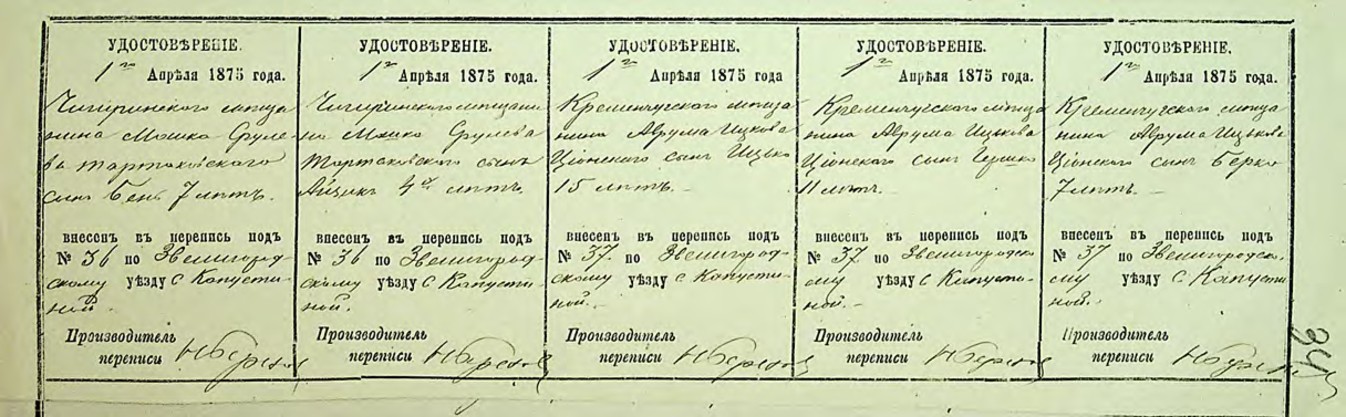 УДОСТОВѢРЕНІЕ.
1го Апрѣля 1875 года.
Чигиринского мѣща
нина Мошка Сруле
ва Тартаковского
сынъ Бень 7 лѣтъ.
внесенъ въ перепись подъ
№ 36 по Звенигород-
скому уѣзду С Капусти-
ной.
Производитель
переписи
УДОСТОВѢРЕНІЕ.
1го Апрѣля 1875 года.
Чигиринского мѣщани
на Мошка Срулева
Тартаковского сынъ
Айзикъ 4х лѣтъ.
внесенъ въ перепись подъ
№ 36 по Звенигород-
скому уѣзду С Капусти-
ной.
Производитель
переписи
УДОСТОВѢРЕНІЕ.
1го Апрѣля 1875 года
Кременчугского мѣща
нина Аврума Ицкова
Ціонского сынъ Ицько
15 лѣтъ. -
внесенъ въ перепись подъ
№ 37. по Звенигород-
скому уѣзду С Капусти-
ной. -
Производитель
переписи
УДОСТОВѢРЕНІЕ.
1го Апрѣля 1875 года.
Кременчугского мѣща
нина Аврума Ицькова
Ціонского сынъ Гершко
11 лѣтъ.
внесенъ въ перепись подъ
№ 37 по Звенигородско
му уѣзду С Капусти-
ной. -
Производитель
переписи
УДОСТОВѢРЕНІЕ.
1го Апрѣля 1875 года.
Кременчугского мѣща
нина Аврума Ицькова
Ціонского сынъ Берко
7 лѣтъ. -
внесенъ въ перепись подъ
№ 37 по Звенигородско-
му уѣзду С. Капусти
ной.
Производитель
переписи
34